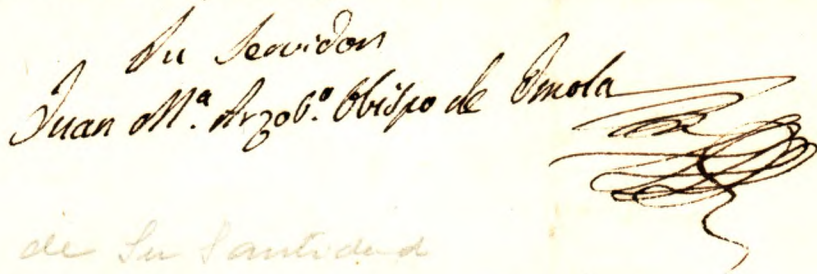 Su Servidor
Juan M.ª Arzob.º Obispo de Imola
de Su Santidad